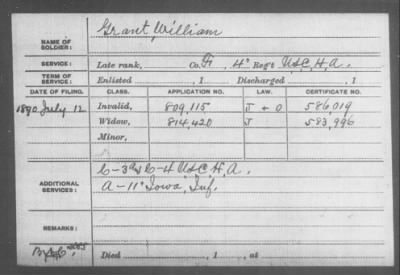 NAME OF SOLDIER: Grant, William
SERVICE: Late rank, Co. 4" Reg't U.S.C.H.A.
TERM OF SERVICE: Enlisted , 1 Discharged , 1
DATE OF FILING. CLASS. APPLICATION NO. LAW. CERTIFICATE NO.
1890 July 12 Invalid, 809,115 J + O 586,019
Widow, 814,420 J 583,996
Minor,
ADDITIONAL SERVICES: C-4 U.S.C.H.A.
A-11" Iowa, Inf.
REMARKS:
Died , 1 , at